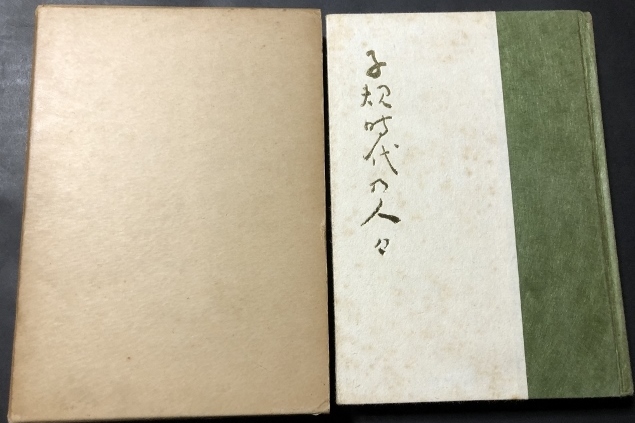 子規時代の人々